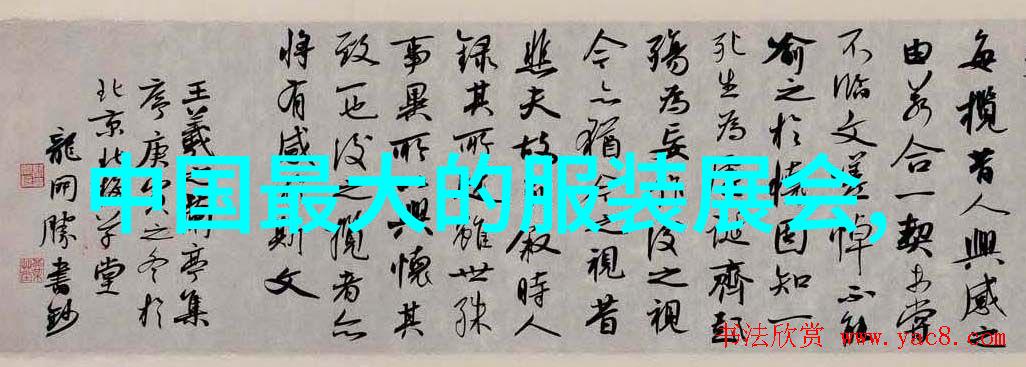 每攬昔人興感之
由若合一契未嘗
不臨文嗟悼不能
喻之於懷固知一
死生為誕齊彭
殤為妄後之視
今亦猶今之視昔
悲夫故敘時人
錄其所雖世殊
事異所興懷其
致一也後之攬者亦
將有感斯文
王羲亭集
序庚之冬於
北京北草堂
龍開勝書鈔
中国最大的服装展会,
书法欣赏 www.yac8.com